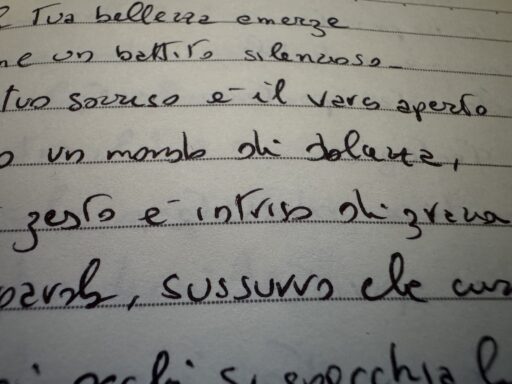 Tua bellezza emerge
un battito silenzioso
tuo sorriso è il varco aperto
un mondo di dolcezza,
gesto è intriso di grazia
parola, sussurro che
occhi si specchia